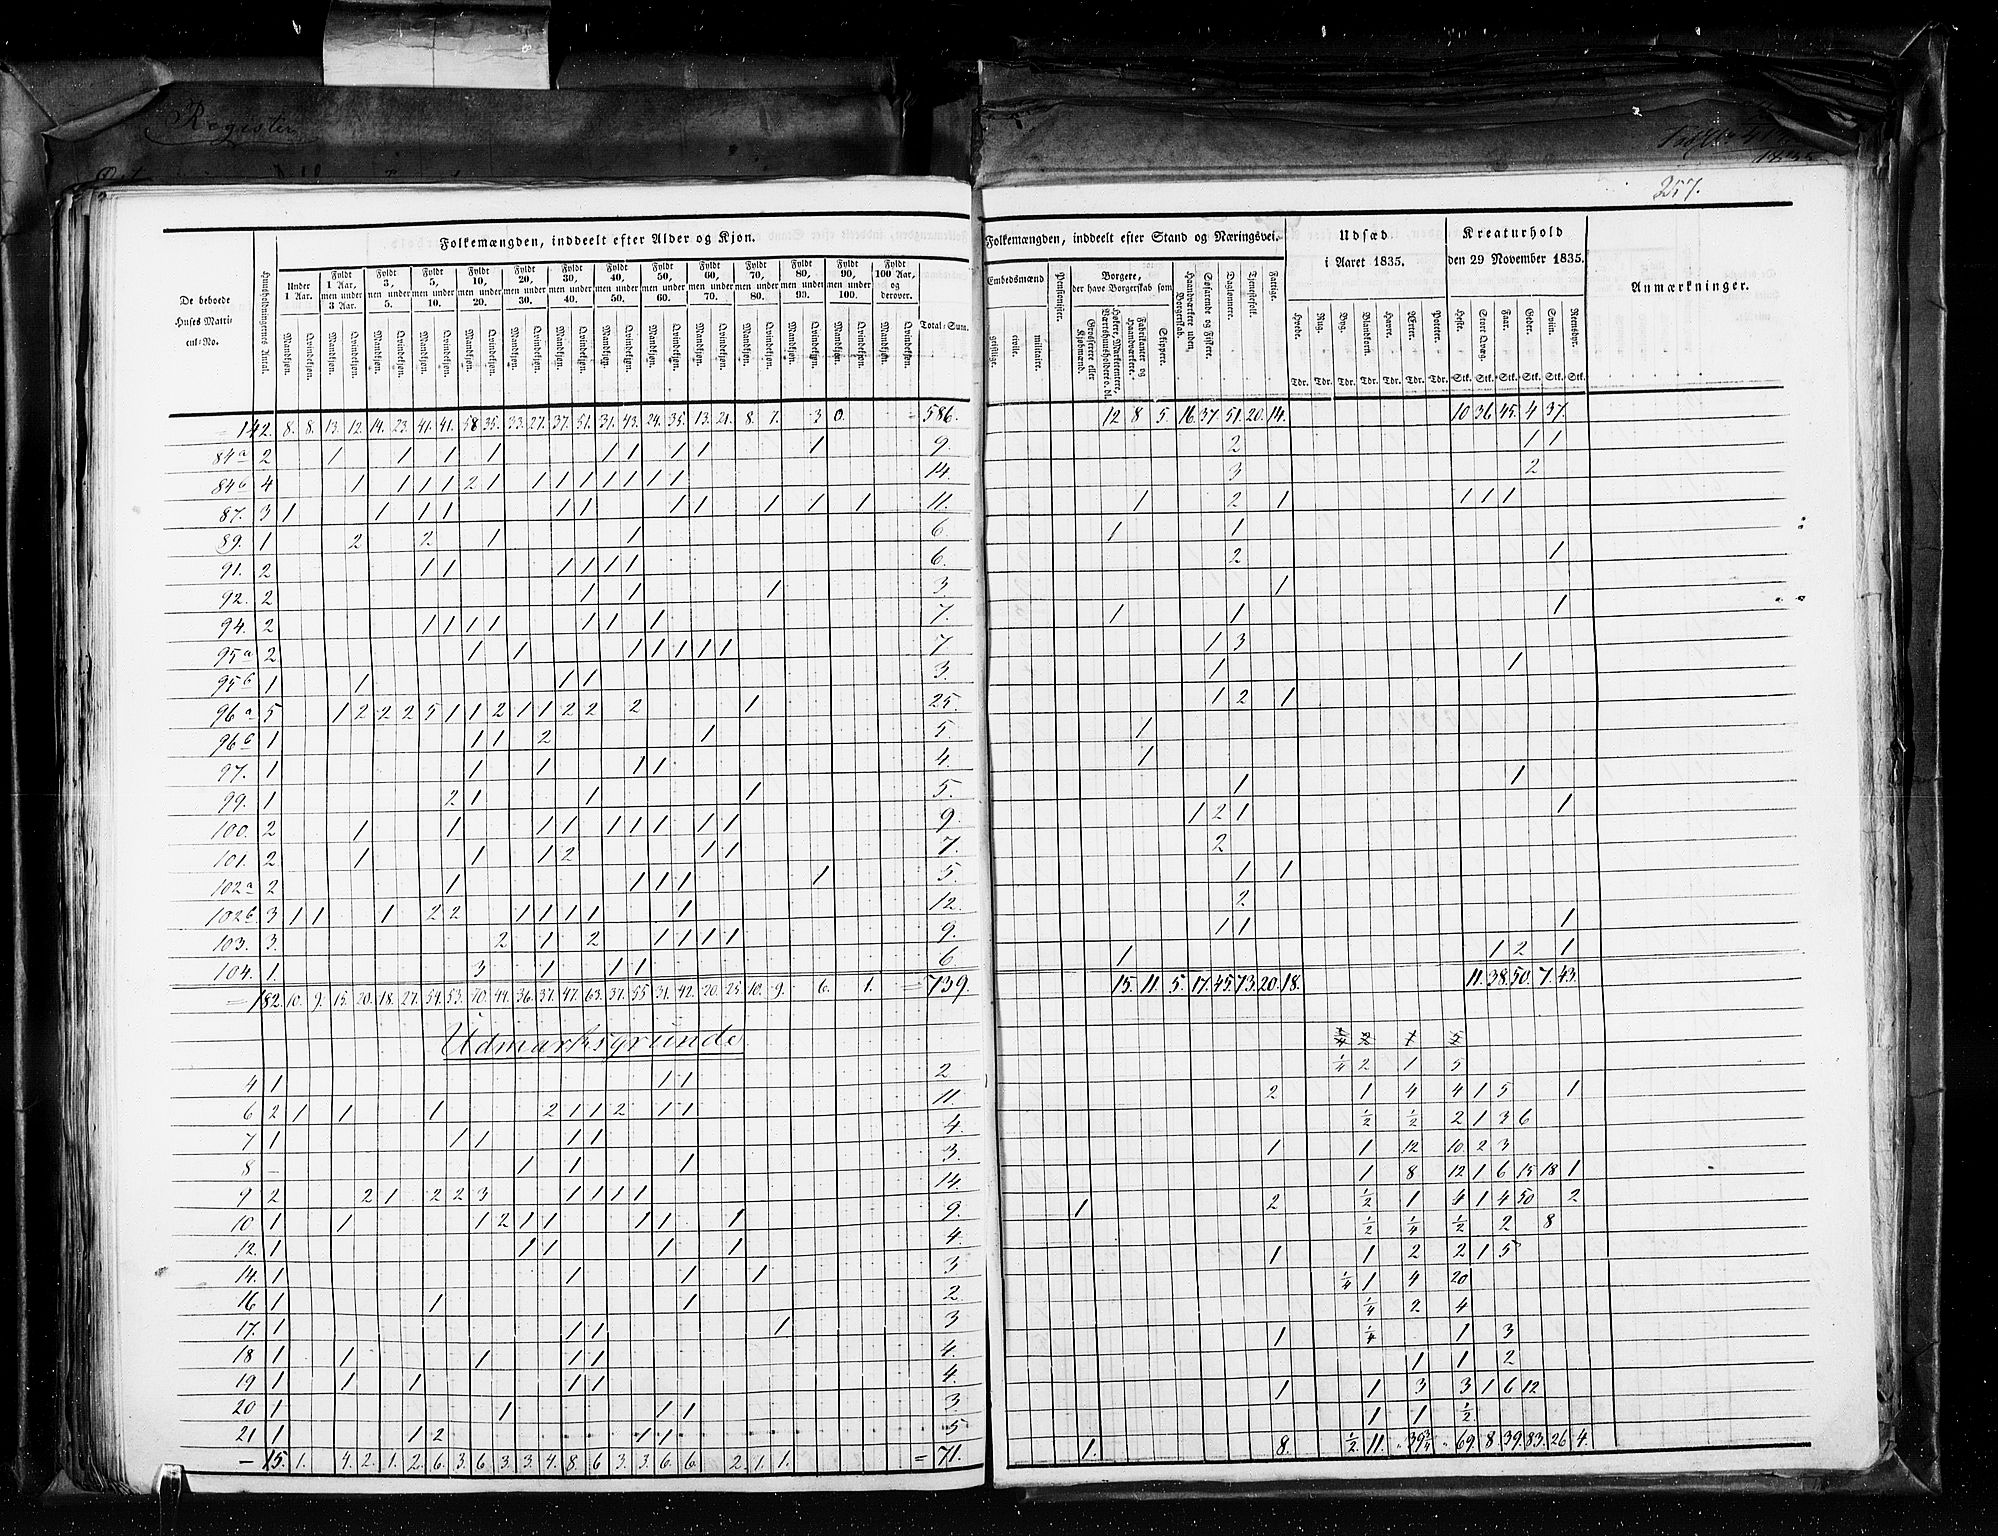 Register
257.
Folkemængden, inddeelt efter Alder og Kjøn.
De beboede Huses Matricul-No.
Huusholdningernes Antal.
Under 1 Aar.
Fyldt 1 Aar, men under 3 Aar.
Fyldt 3, men under 5.
Fyldt 5, men under 10.
Fyldt 10, men under 20.
Fyldt 20, men under 30.
Fyldt 30, men under 40.
Fyldt 40, men under 50.
Fyldt 50, men under 60.
Fyldt 60, men under 70.
Fyldt 70, men under 80.
Fyldt 80, men under 90.
Fyldt 90, men under 100.
Fyldt 100 Aar, og derover.
Mandkjøn. Qvindekjøn.
Total-Sum.
= 142. 8. 8. 13. 12. 14. 23. 41. 41. 58. 35. 33. 27. 37. 51. 31. 43. 24. 35. 13. 21. 8. 7. 3 0. = 586.
84a 2 1 1 1 1 1 1 1 1 1 9.
84b 4 1 1 1 1 2 1 1 1 1 1 1 1 1 14.
87. 3 1 1 1 1 1 1 1 1 1 1 1 11.
89. 1 2 2 1 1 6.
91. 2 1 1 1 1 1 1 6.
92. 2 1 1 1 3
94. 2 1 1 1 1 1 1 1 7.
95a 2 1 1 1 1 1 1 1 7
95b 1 1 1 1 3.
96a 5 1 2 2 2 5 1 1 2 1 1 2 2 2 1 25.
96b 1 1 1 2 1 5
97. 1 1 1 1 1 4.
99. 1 2 1 1 1 5.
100. 2 1 1 1 1 1 1 1 1 1 9.
101. 2 1 1 1 2 1 1 7.
102a 2 1 1 1 1 1 5.
102b 3 1 1 1 2 2 1 1 1 1 1 12.
103. 3. 2 1 2 1 1 1 1 9.
104. 1. 3 1 1 1 6
= 182. 10. 9. 15. 20. 18. 27. 54. 53. 70. 44. 36. 37. 47. 63. 37. 55. 31. 42. 20. 25. 10. 9. 6. 1. = 739.
Udmarksgrunde
4 1 1 1 2
6 2 1 1 1 2 1 1 2 1 1 11.
7 1 1 1 1 1 4.
8 – 1 1 1 3.
9 2 2 1 2 2 3 1 1 1 1 14.
10 1 1 1 2 1 1 1 1 1 9.
12. 1 1 1 1 1 4.
14. 1 1 1 1 3
16 1 1 1 2.
17. 1 1 1 1 3
18 1 1 1 1 1 4.
19 1 1 1 1 1 4.
20 1 1 1 1 3.
21 1 1 2 1 1 5
– 15. 1. 4. 2. 1. 2. 6. 3. 6. 3. 3. 4. 8. 6 3. 3. 6. 6. 2. 1. 1. = 71.
Folkemængden, inddeelt efter Stand og Næringsvei.
Embedsmænd
geistlige. civile. militaire.
Pensionister.
Borgere, der have Borgerskab som
Grosserere eller Kjøbmænd.
Høkere, Marketentere, Værtshuusholdere o. dl.
Fabrikanter og Haandværkere.
Skippere.
Haandværkere uden Borgerskab.
Søfarende og Fiskere.
Dagløunere.
Tjenestefolk.
Fattige.
Udsæd i Aaret 1835.
Hvede. Rug. Byg. Blandkorn. Havre. Ærter. Poteter.
Tdr. Tdr. Tdr. Tdr. Tdr. Tdr. Tdr.
Kreaturhold den 29 November 1835.
Heste. Stort Qvæg. Faar. Geder. Sviin. Reensdyr.
Stk. Stk. Stk. Stk. Stk. Stk.
Anmærkninger.
12 8 5. 16. 37. 51. 20. 14. 10 36 45. 4 37.
2 1 1
3 2
1 2 1 1 1 1
1 1
2 1
1
1 1 1
1 3
1 1
1 2 1
1
1
1 1
1 2 1 1
2
1 1
2
1 1 1
1 1 2 1
15. 11. 5. 17. 45. 73. 20. 18. 11. 38. 50. 7. 43.
1/4 2 1 5
2 1 4 4 1 5 1
1/2 1/2 2 1 3 6
1 1 12 10 2 3
1 8 12 1 6 15 18 1
1 2 1/2 1 4 1 4 50 2
1/2 1/4 1/2 2 8
1 1 2 2 1 5
1/4 1 4 20
1/4 2 4
1 1/4 1 3
1 1 2
1 1 3 3 1 6 12
1 1 1/2
1. 8. 1/2 11. 39 3/4 69. 8. 39. 83. 26 4.